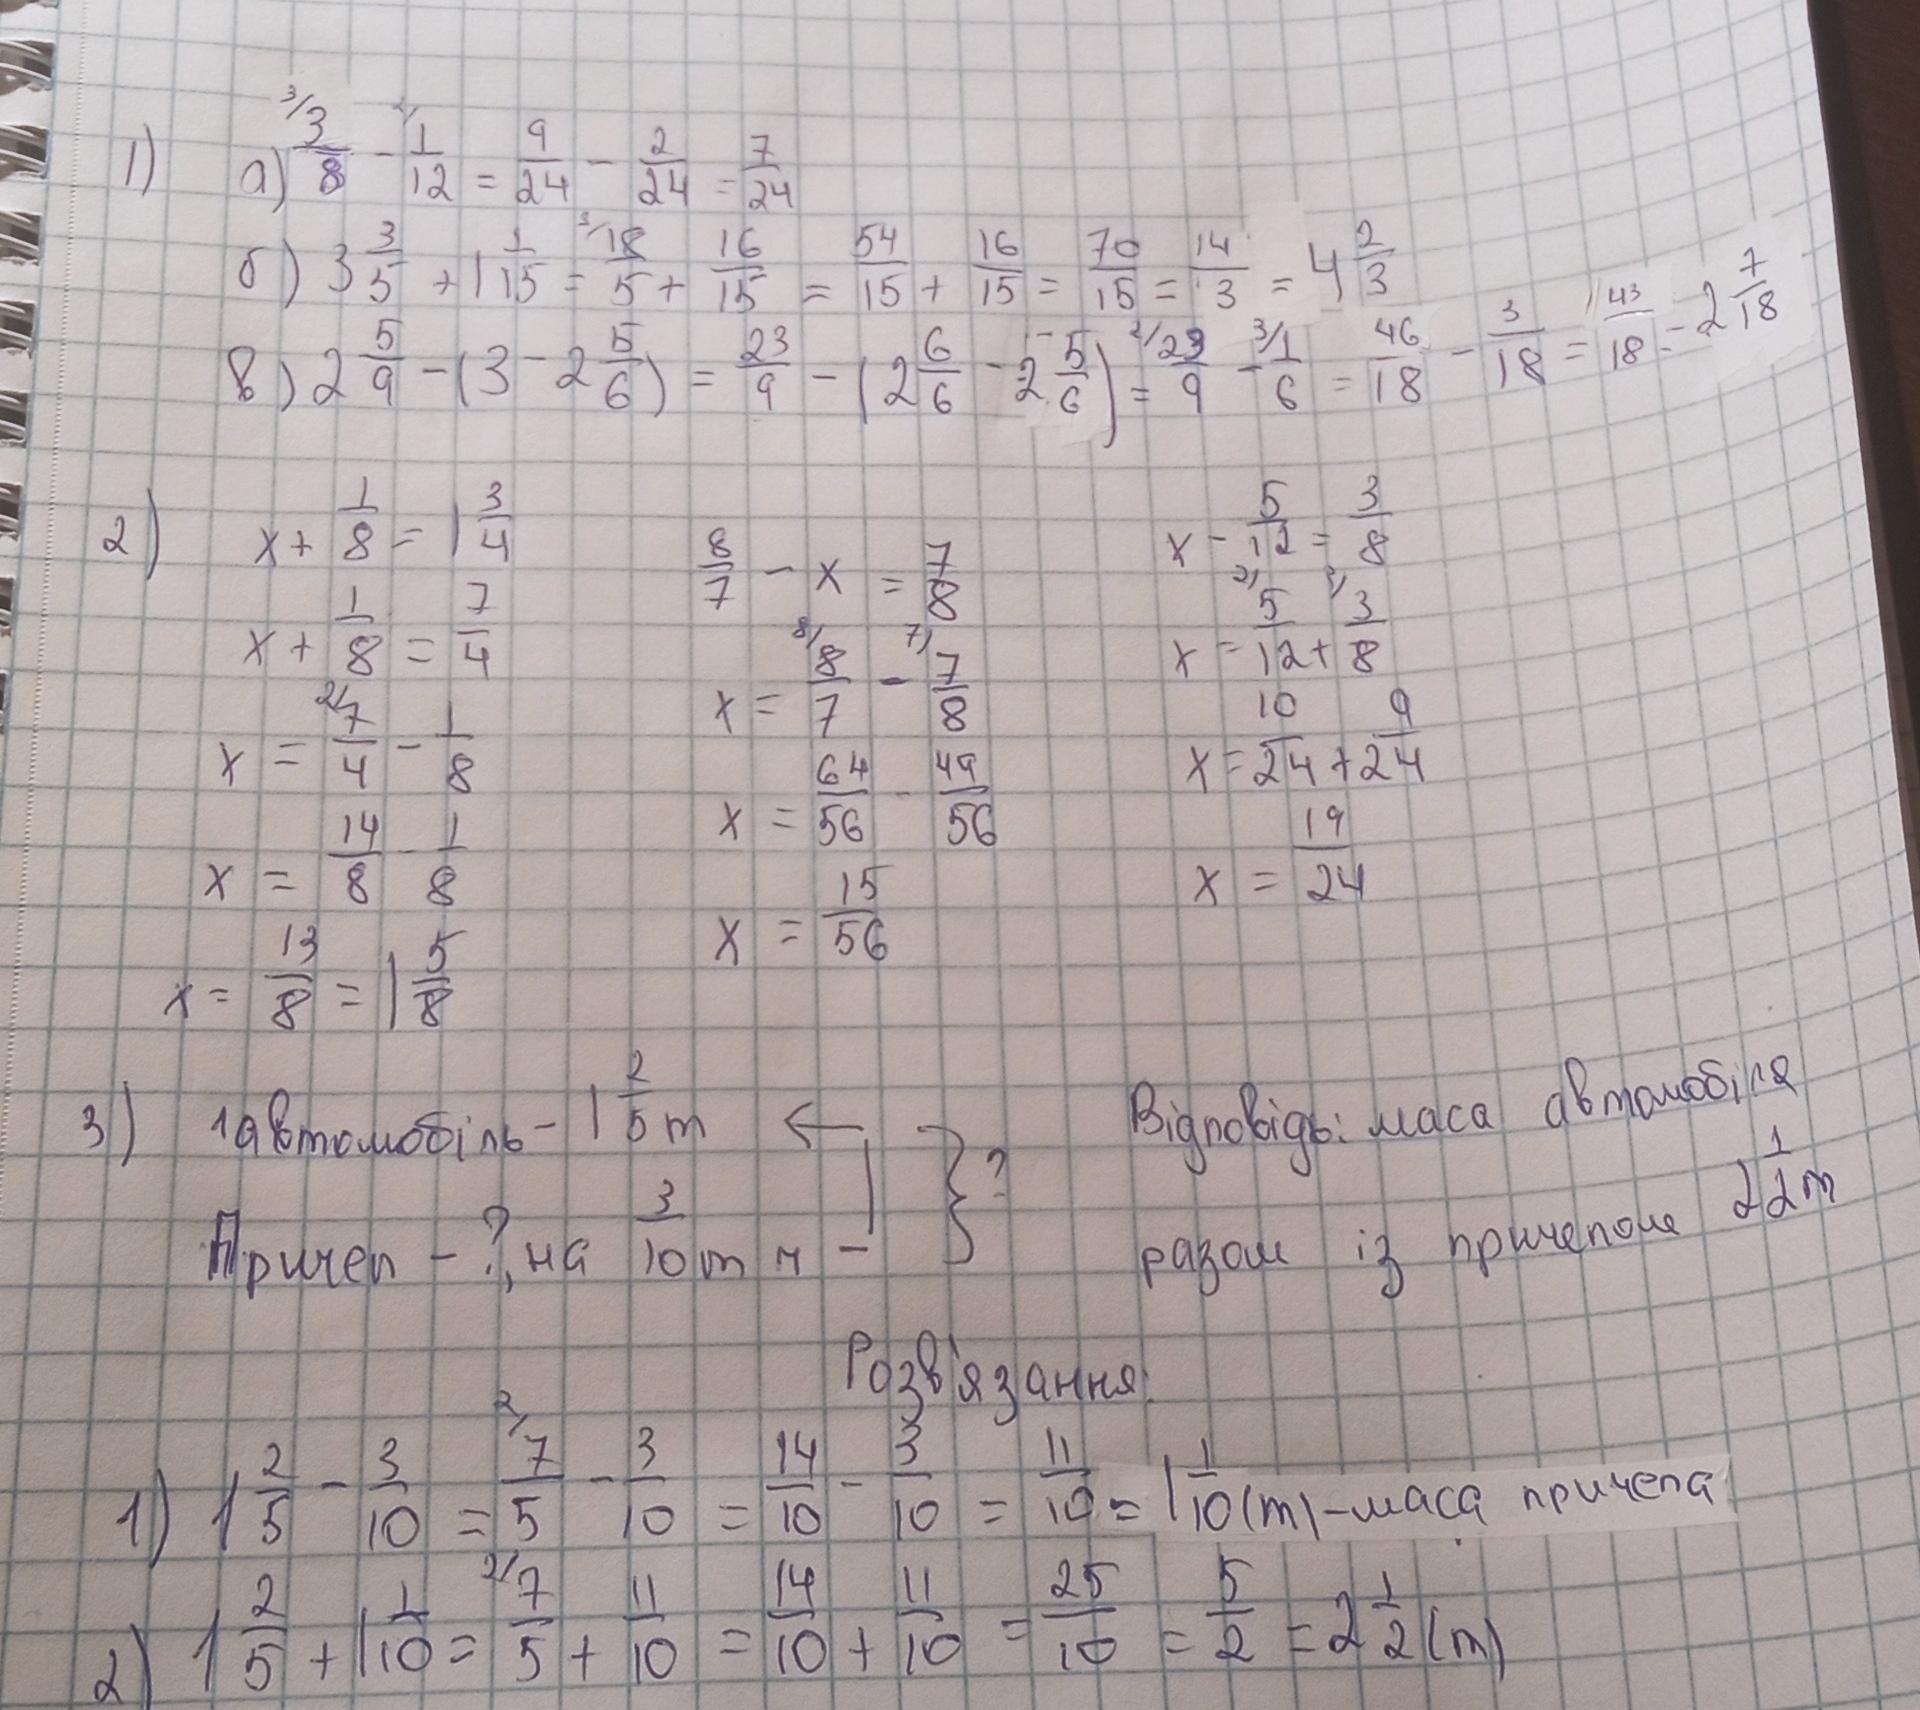 1) а) ³/3/8 - ²/1/12 = 9/24 - 2/24 = 7/24
б) 3 3/5 + 1 1/15 = ³/18/5 + 16/15 = 54/15 + 16/15 = 70/15 = 14/3 = 4 2/3
в) 2 5/9 - (3 - 2 5/6) = 23/9 - (2 6/6 - 2 5/6) = ²/23/9 - ³/1/6 = 46/18 - 3/18 = 43/18 = 2 7/18
2) x + 1/8 = 1 3/4
x + 1/8 = 7/4
x = ²/7/4 - 1/8
x = 14/8 - 1/8
x = 13/8 = 1 5/8
8/7 - x = 7/8
x = ⁸/8/7 - ⁷/7/8
x = 64/56 - 49/56
x = 15/56
x - 5/12 = 3/8
x = ²/5/12 + ³/3/8
x = 10/24 + 9/24
x = 19/24
3) 1 автомобіль - 1 2/5 т ←
Причеп - ?, на 3/10 т м - } ?
Відповідь: маса автомобіля
разом із причепом 2 1/2 т
Розв'язання:
1) 1 2/5 - 3/10 = ²/7/5 - 3/10 = 14/10 - 3/10 = 11/10 = 1 1/10 (т) - маса причепа
2) 1 2/5 + 1 1/10 = ²/7/5 + 11/10 = 14/10 + 11/10 = 25/10 = 5/2 = 2 1/2 (т)